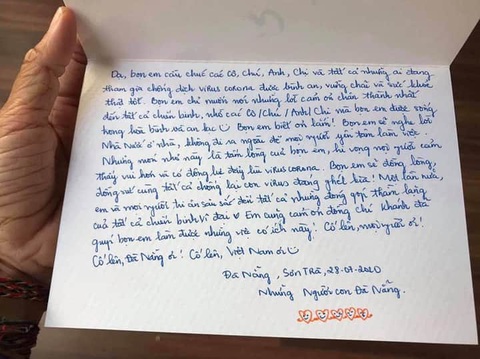 Dạ, bọn em cầu chúc các Cô, Chú, Anh, Chị và tất cả những ai đang
tham gia chống dịch virus corona được bình an, vững chãi và sức khỏe
thật tốt. Bọn em chỉ muốn nói những lời cảm ơn chân thành nhất
đến tất cả chiến binh, nhờ các Cô/Chú/Anh/Chị mà bọn em được sống
trong hòa bình và an lạc Bọn em biết ơn lắm! Bọn em sẽ nghe lời
Nhà Nước ở nhà, không đi ra ngoài để mọi người yên tâm làm việc.
Nhưng món nhỏ này là tấm lòng của bọn em, hi vọng mọi người cảm
thấy vui hơn và có động lực đẩy lùi virus corona. Bọn em sẽ đồng lòng,
đồng sức cùng tất cả chống lại con virus đáng ghét kia! Một lần nữa,
em và mọi người tri ân sâu sắc đến tất cả những đóng góp thầm lặng
của tất cả chiến binh vĩ đại Em cũng cảm ơn đồng chí Khánh đã
giúp bọn em làm được những việc có ích này! Cố lên, mọi người ơi!
Cố lên, Đà Nẵng ơi! Cố lên, Việt Nam ơi
Đà Nẵng, Sơn Trà, 28-07-2020
Những Người con Đà Nẵng.